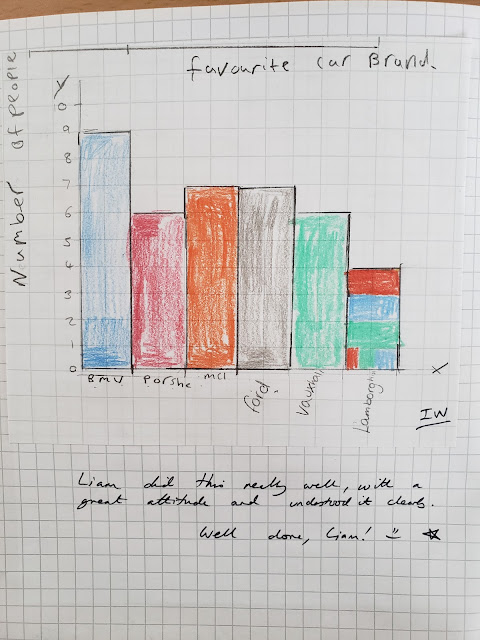 favourite car Brand.
Number of people
Y
0
9
8
7
6
5
4
3
2
1
0
BMW
Porshe
MCl
ford.
Vauxhall
Lamborghini
X
IW
Liam did this really well, with a
great attitude and understood it clearly.
Well done, Liam!